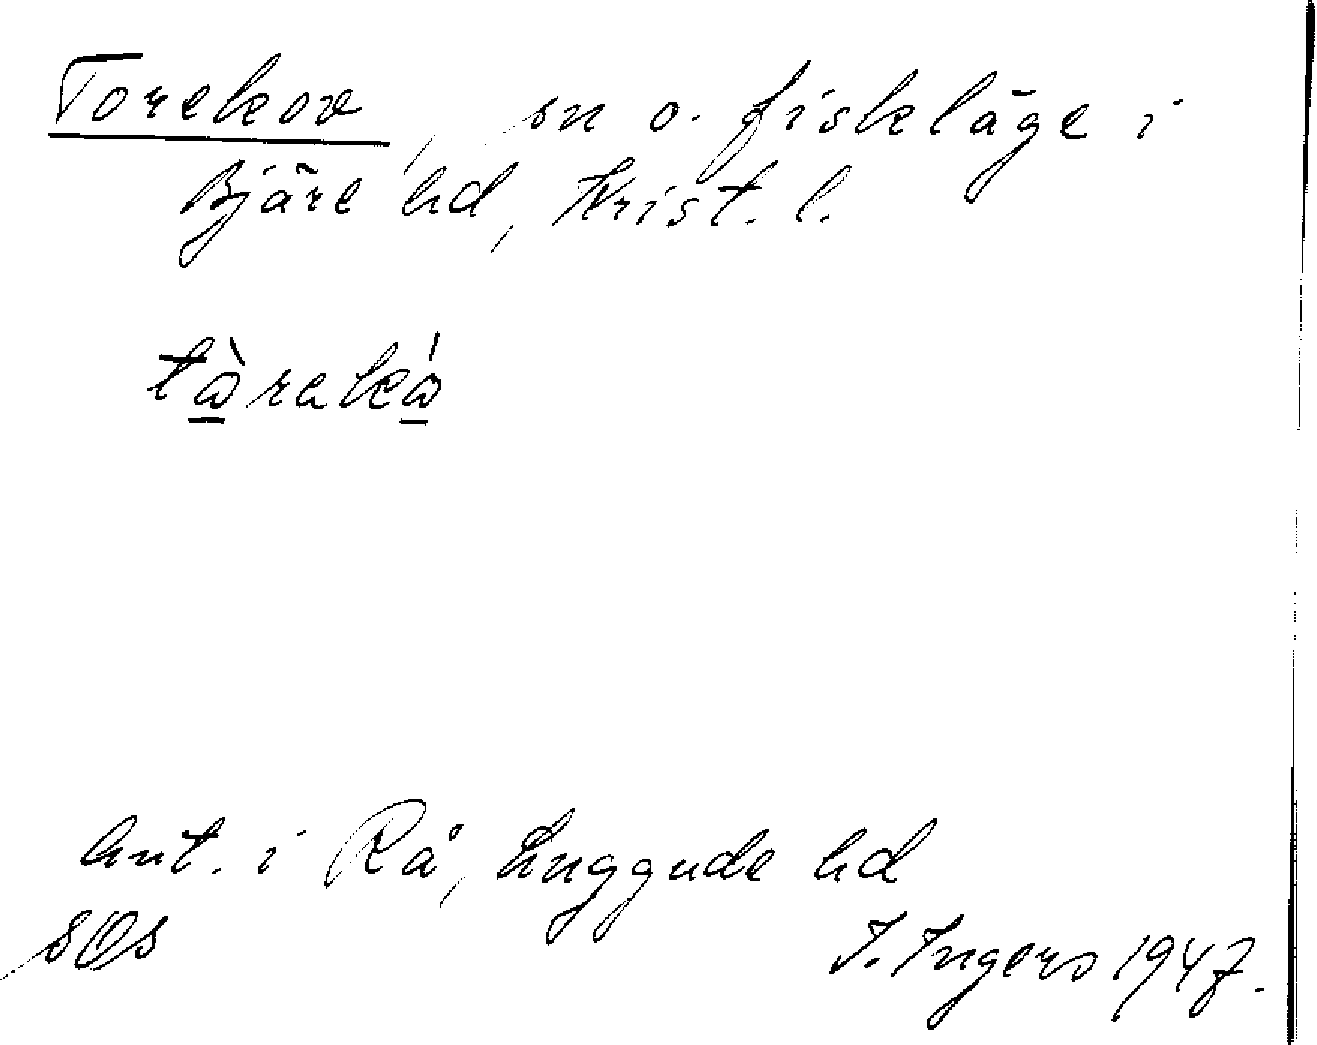 Torekov, sn o. fiskläge i
Bjäre hd, Krist. l.
tò̲rekó̲
Ant. i Rå, Luggude hd
I. Ingers 1947.